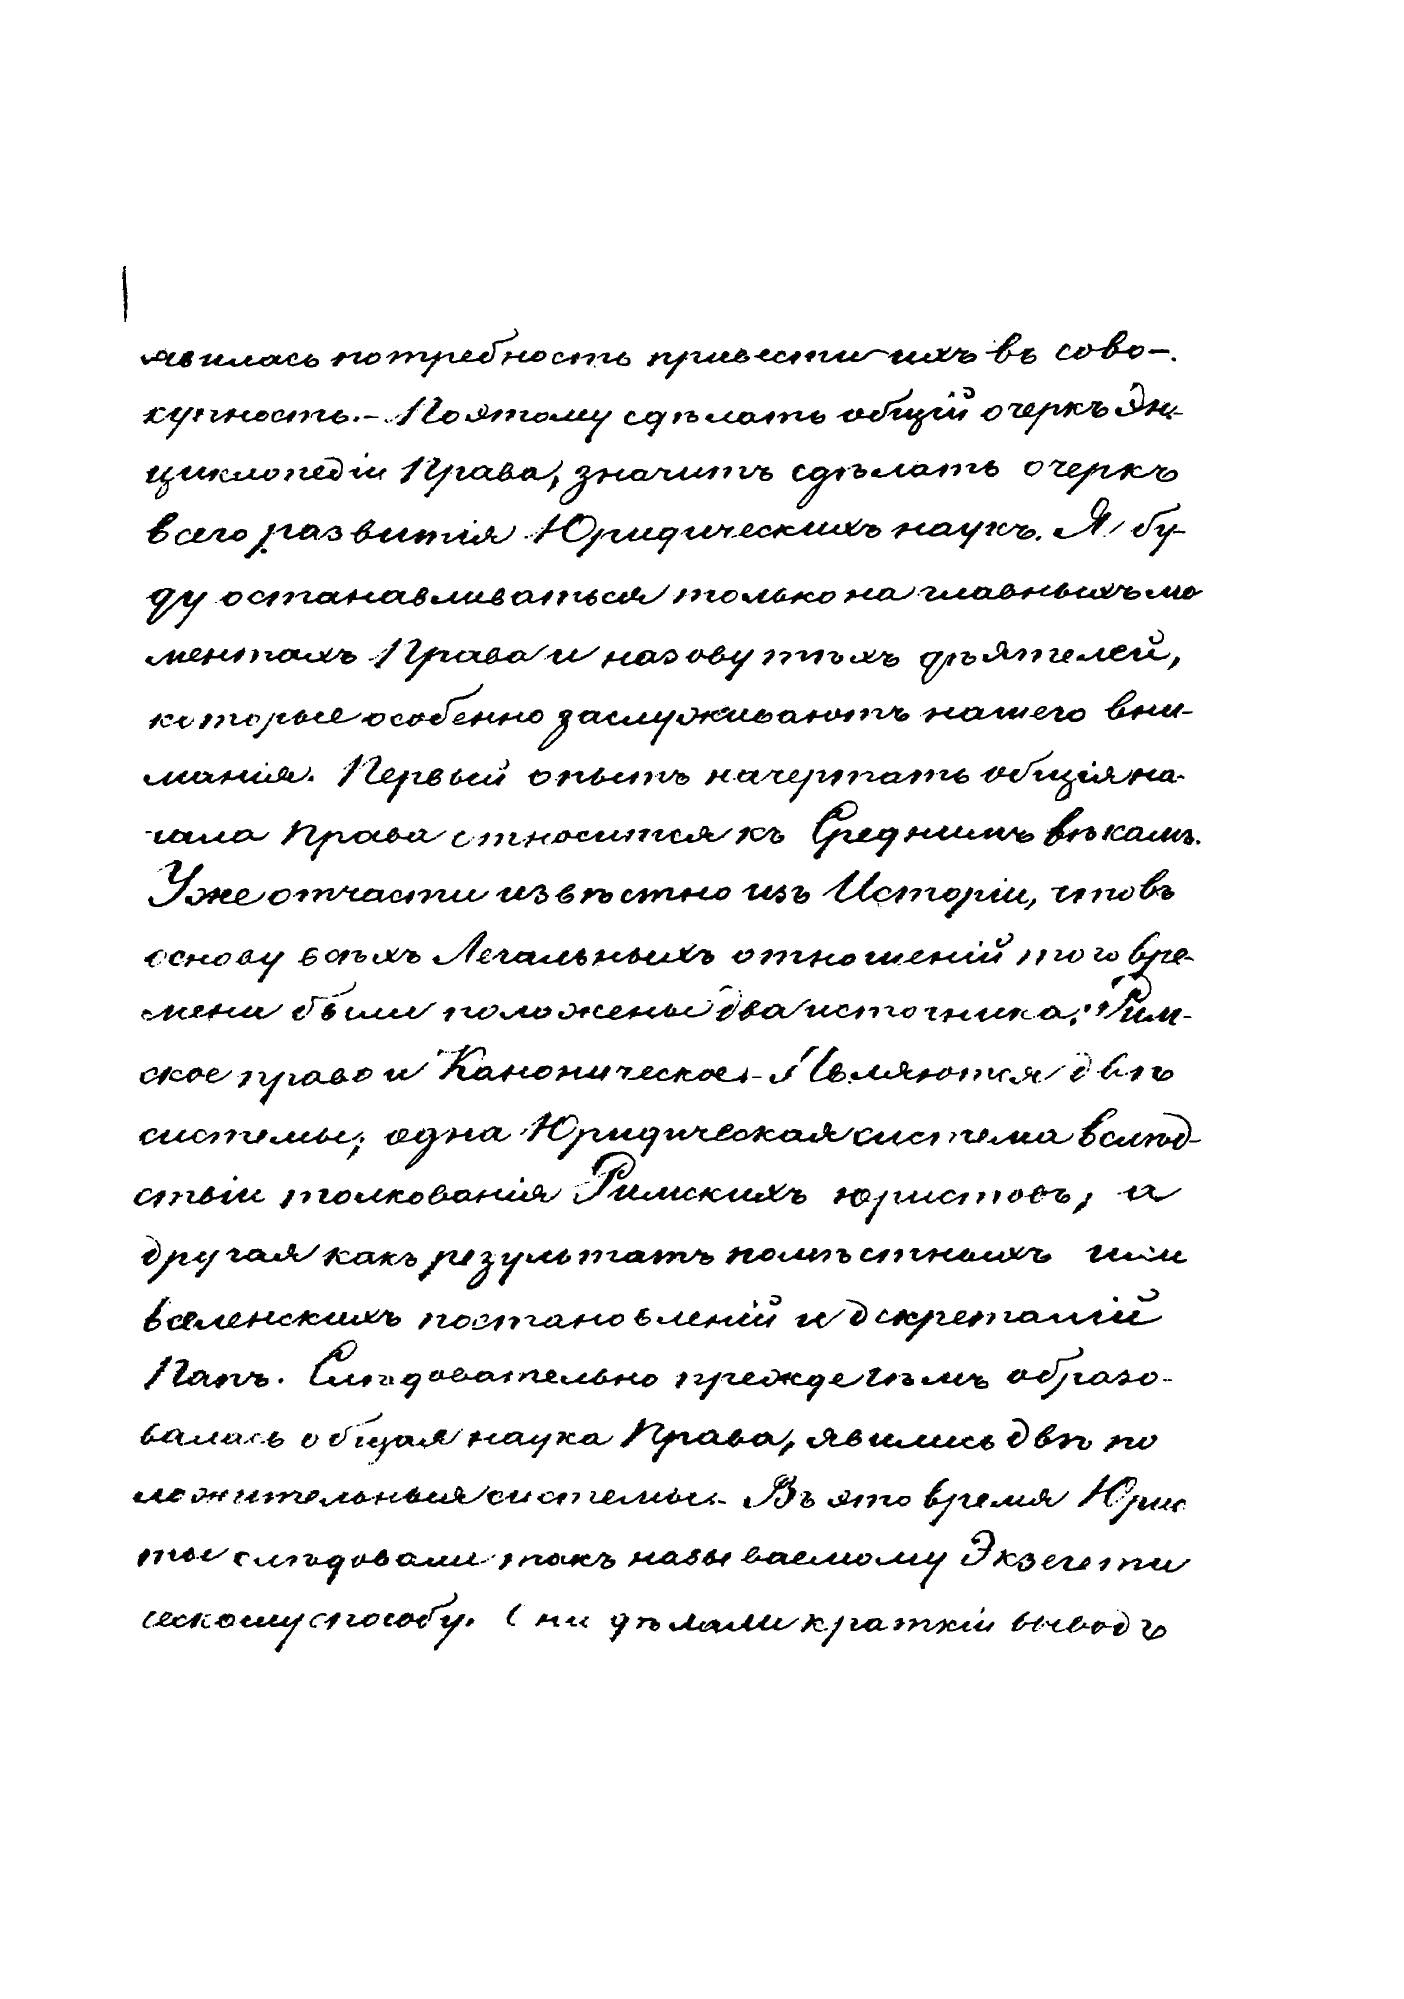 явилась потребность привести ихъ въ сово-
купность.- Поэтому сдѣлать общій очеркъ Эн-
циклопедіи Права, значитъ сдѣлать очеркъ
всего развитія Юридическихъ наукъ. Я бу-
ду останавливаться только на главныхъ мо
ментахъ Права и назову тѣхъ дѣятелей,
которые особенно заслуживаютъ нашего вни-
манія. Первый опытъ начертать общія на-
чала Права относится къ Среднимъ вѣкамъ.
Уже отчасти извѣстно изъ Исторіи, что въ
основу всѣхъ Легальныхъ отношеній того вре-
мени были положены два источника: Рим-
ское право и Каноническое.- Являются двѣ
системы; одна Юридическая система вслѣд-
ствіи толкованія Римскихъ юристовъ, а
другая какъ результатъ помѣстныхъ или
вселенскихъ постановленій и декреталій
Папъ. Слѣдовательно прежде чѣмъ образо-
валась общая наука Права, явились двѣ по
ложительныя системы.- Въ это время Юрис
ты слѣдовали такъ называемому Экзегети
ческому способу. Они дѣлали краткій выводъ